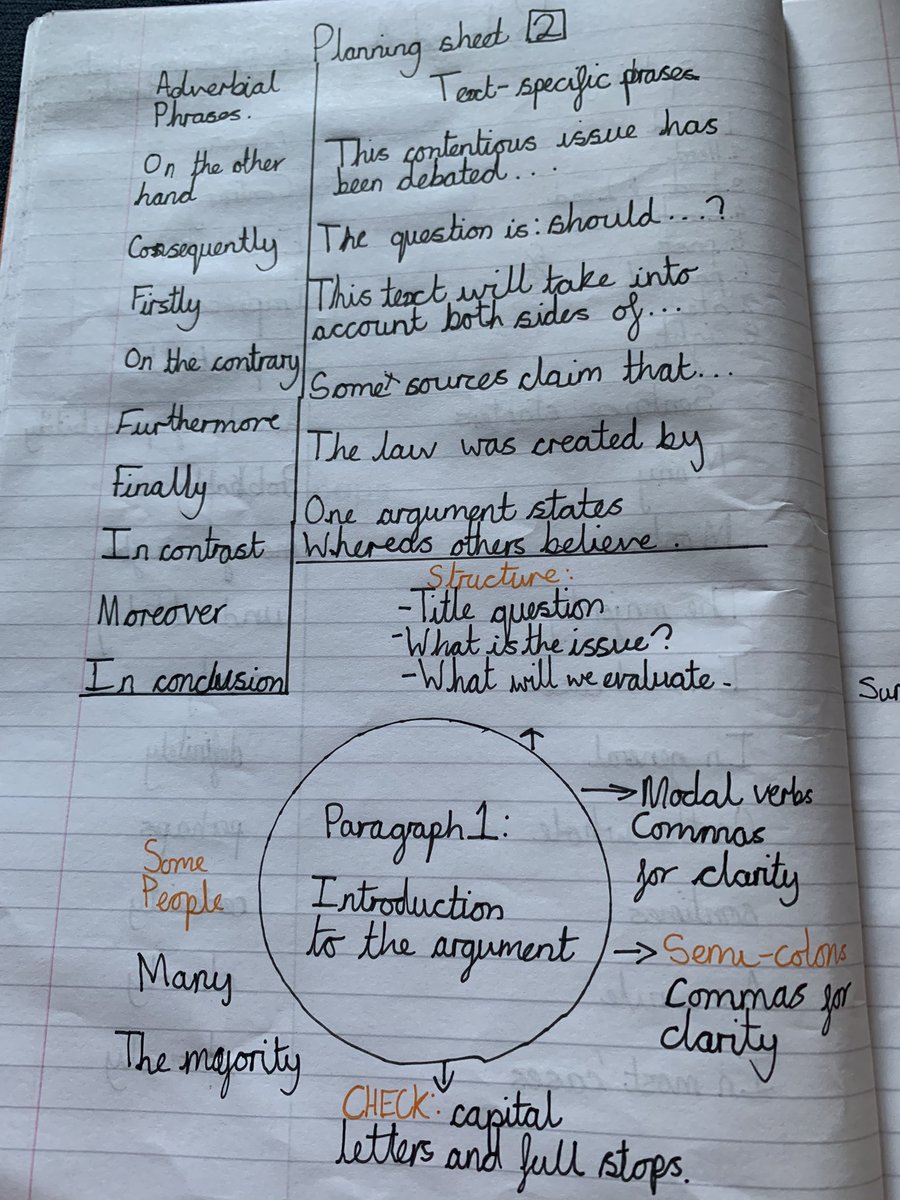 Planning sheet 2
Adverbial
Phrases.
On the other
hand
Consequently
Firstly
On the contrary
Furthermore
Finally
In contrast
Moreover
In conclusion
Text-specific phrases
This contentious issue has
been debated...
The question is: should...?
This text will take into
account both sides of...
Some sources claim that...
The law was created by
One argument states
Whereas others believe.
Structure:
-Title question
-What is the issue?
-What will we evaluate-
Paragraph 1:
Introduction
to the argument
Some
People
Many
The majority
→Modal verbs
Commas
for clarity
→Semi-colons
Commas for
clarity
CHECK: capital
letters and full stops.